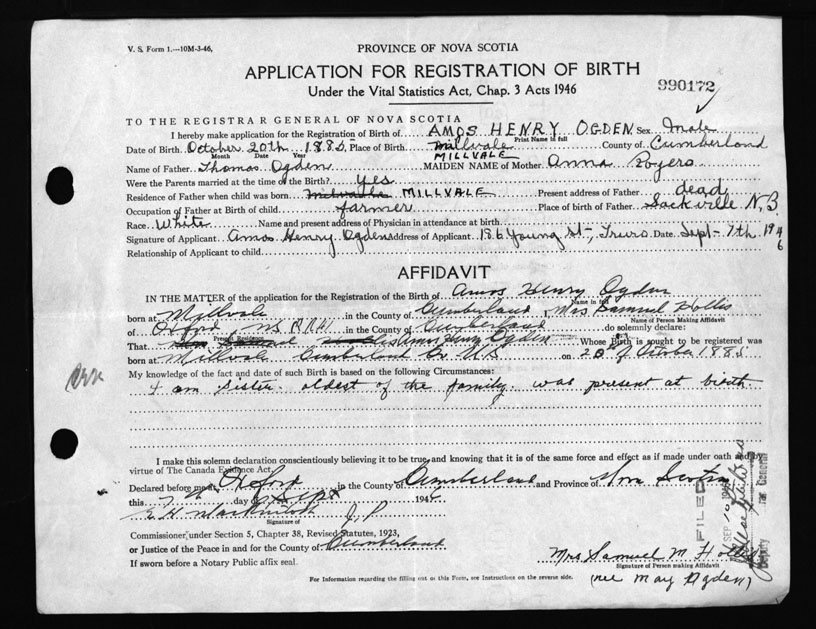 V. S. Form 1.—10M-3-46,
PROVINCE OF NOVA SCOTIA
APPLICATION FOR REGISTRATION OF BIRTH
990172
Under the Vital Statistics Act, Chap. 3 Acts 1946
TO THE REGISTRAR GENERAL OF NOVA SCOTIA
I hereby make application for the Registration of Birth of AMOS HENRY OGDEN Sex Male
Print Name in full
Date of Birth October 20th 1885 Place of Birth Millvale County of Cumberland
Month Date Year MILLVALE
Name of Father Thomas Ogden MAIDEN NAME of Mother Anna Rogers
Were the Parents married at the time of the Birth? yes
Residence of Father when child was born MILLVALE Present address of Father dead
Occupation of Father at Birth of child farmer Place of birth of Father Sackville N.B.
Race White Name and present address of Physician in attendance at birth
Signature of Applicant Amos Henry Ogden Address of Applicant 186 Young St., Truro Date Sept- 7th 1946
Relationship of Applicant to child
AFFIDAVIT
IN THE MATTER of the application for the Registration of the Birth of Amos Henry Ogden
Name in full
born at Millvale in the County of Cumberland, Mrs Samuel Hollis
Name of Person Making Affidavit
of Oxford, NS in the County of Cumberland do solemnly declare:
Present Residence
That Amos Henry Ogden Whose Birth is sought to be registered was
born at Millvale Cumberland Co. N.S on 20th of October 1885
My knowledge of the fact and date of such Birth is based on the following Circumstances:
I am sister oldest of the family. was present at birth.
I make this solemn declaration conscientiously believing it to be true and knowing that it is of the same force and effect as if made under oath and by
virtue of The Canada Evidence Act.
Declared before me at Oxford in the County of Cumberland and Province of Nova Scotia
this 7th day of Sept 1946
J.P
Signature of
Commissioner under Section 5, Chapter 38, Revised Statutes, 1923,
or Justice of the Peace in and for the County of Cumberland
If sworn before a Notary Public affix seal.
Mrs Samuel M. Hollis
Signature of Person making Affidavit
(nee May Ogden)
For Information regarding the filling out of this Form, see Instructions on the reverse side.
FILED
SEP 10 1946
Deputy Registrar General